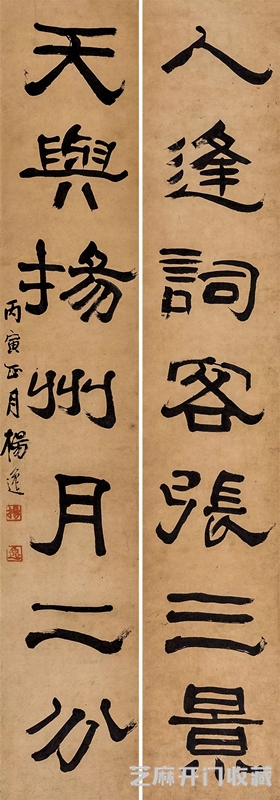 人逢詞客張三景
天與揚州月二分
丙寅正月楊逸
芝麻开门收藏